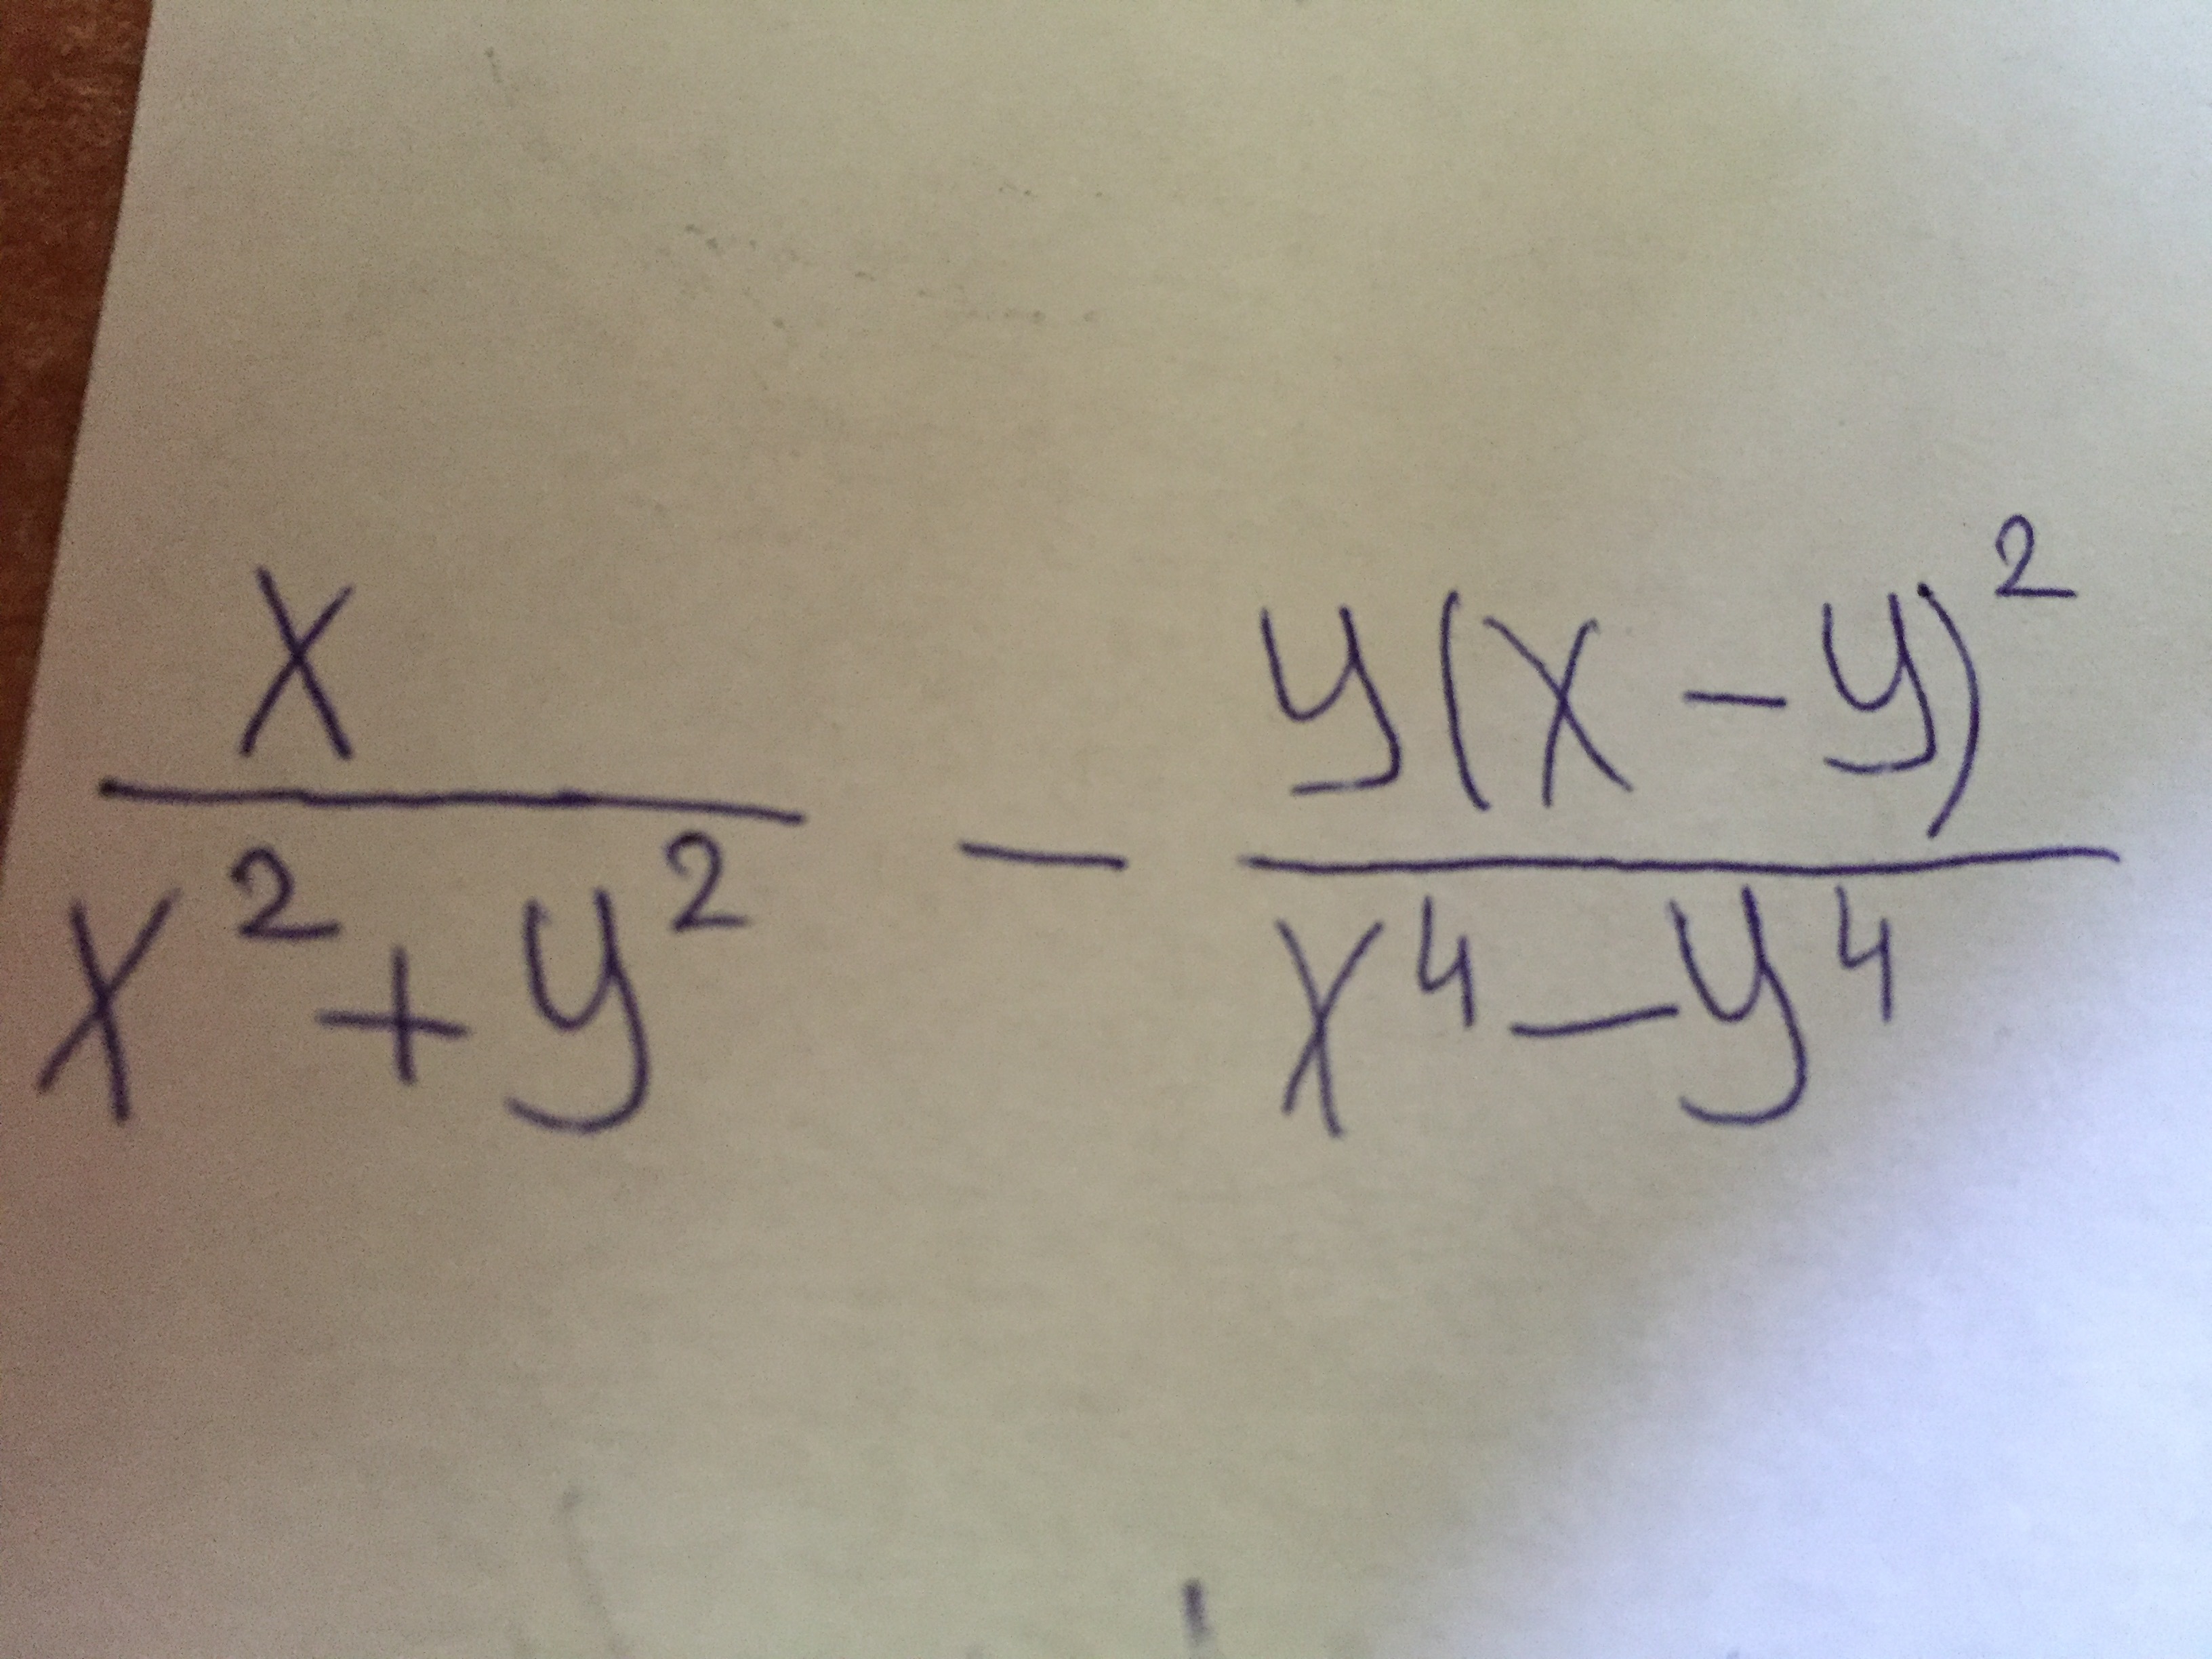 x/(x²+y²) - y(x-y)²/(x⁴-y⁴)